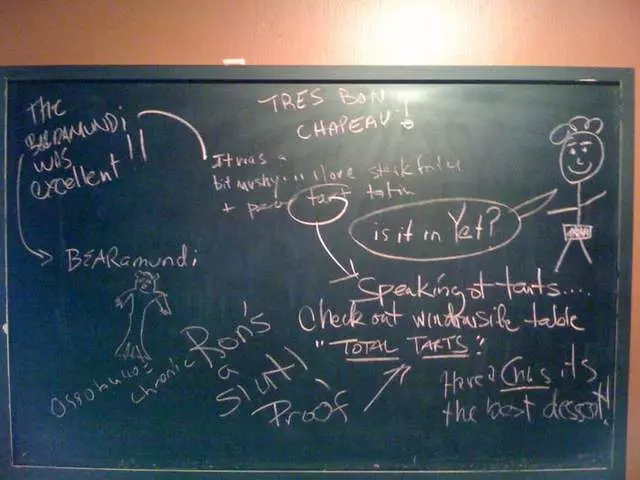 THE
BEARAMUNDI
WAS
excellent!!
TRES BON
CHAPEAU!
It was a
bit mushy... I love
+ tart tatin
is it in Yet?
BEARamundi
Speaking of tarts....
Check out table
"TOTAL TARTS"
Ossobuco's
chronic
Ron's
a
Slut!
Proof
Have a its
the best dessert!!